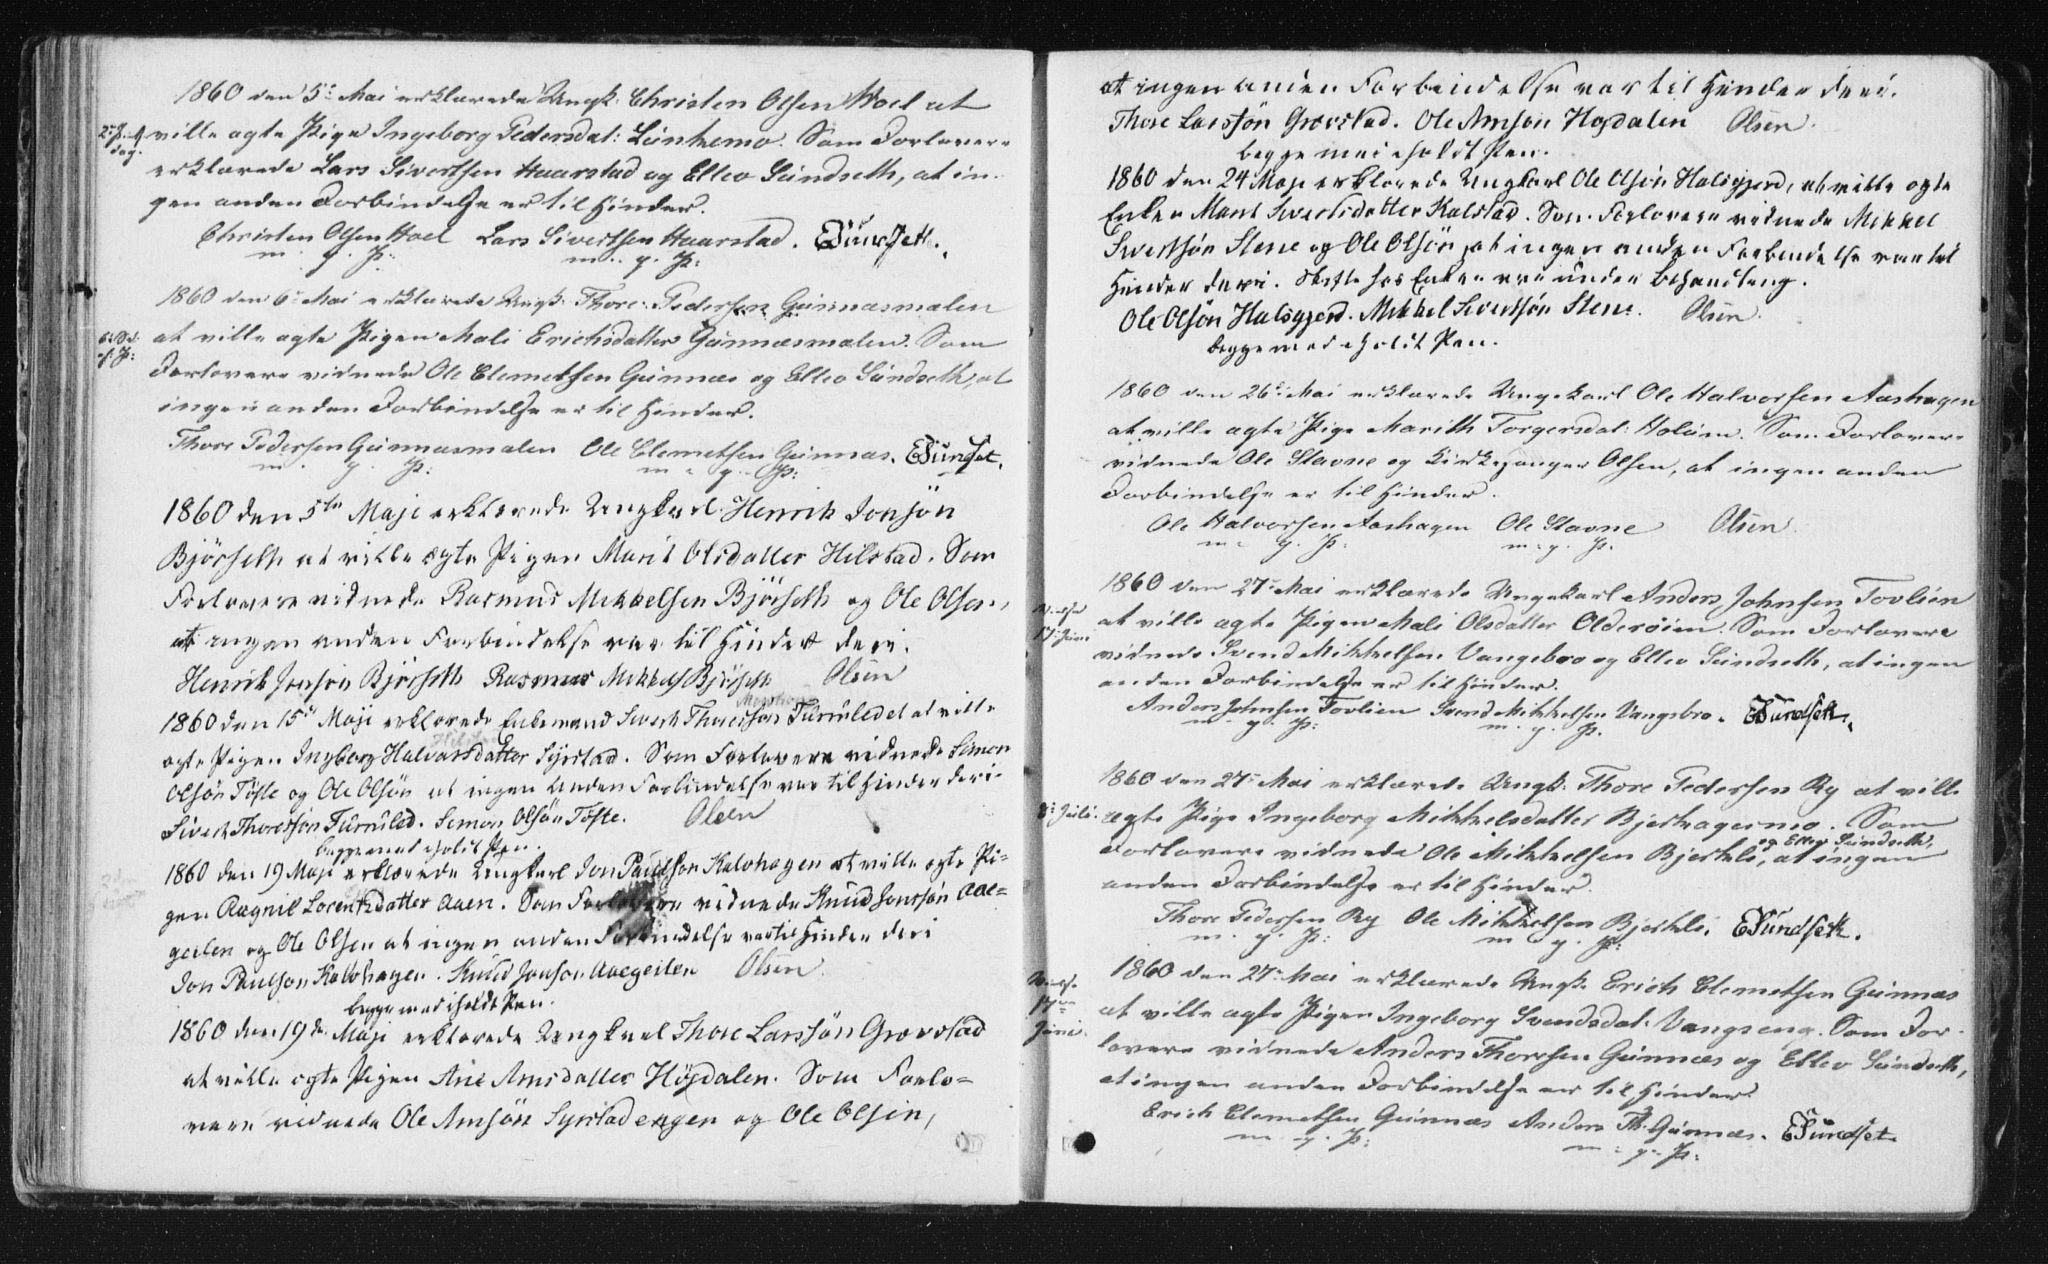 1860 den 5te Mai erklærede Ungk. Christen Olsen Hoel at
ville ægte Pige Ingeborg Pedersdat: Lünkemo. Som Forlovere
erklærede Lars Sivertsen Haarstad og Ellev Sündseth, at in-
gen anden Forbindelse er til Hinder.
Christen Olsen Hoel Lars Sivertsen Haarstad. ESundseth.
m. g. P: m. g. P:
1860 den 6te Mai erklærede Ungk: Thore Pedersen Günnæsmælen
at ville ægte Pigen Mali Erichsdatter Günnæsmælen. Som
Forlovere vidnede Ole Clemetsen Günnæs og Ellev Sündseth, at
ingen anden Forbindelse er til Hinder.
Thore Pedersen Günnæsmælen Ole Clemetsen Günnæs. ESundset.
m. g. P: m. g. P:
1860 den 5te Maji erklærede Ungkarl Henrik Jonsön
Björseth at ville ægte Pigen Marit Olsdatter Hilstad. Som
Forlovere vidnede Rasmus Mikkelsen Björseth og Ole Olsen,
at ingen anden Forbindelse var til Hinder deri.
Henrik Jonsön Björseth Rasmus Mikkels Björseth Olsen
1860 den 15de Maji erklærede Enkemand Sivert Thoresson Türruledet at ville
ægte Pigen Ingberg Halvorsdatter Syrstad. Som Forlovere vidnede Simon
Olsön Töfte og Ole Olsön at ingen Anden Forbindelse var til Hinder deri.
Sivert Thoresson Türruled. Simon Olsön Töfte. Olsen
begge med iholdt Pen.
1860 den 19 Maji erklærede Ungkarl Jon Paulson Kalvhagen at ville ægte Pi-
gen Ragnil Lorentsdatter Aaen. Som Forlovere vidnede Knud Jonssön Aae-
geilen og Ole Olsen at ingen anden Forbindelse var til Hinder deri
Jon Paulson Kalvhagen. Knud Jonson Aaegeilen Olsen.
begge med iholdt Pen.
1860 den 19de Maji erklærede Ungkarl Thore Larssön Grovstad
at ville ægte Pigen Ane Arnsdatter Höjdalen. Som Forlo-
vere vidnede Ole Arnsön Syrstadengen og Ole Olsen,
at ingen anden Forbindelse var til Hinder deri.
Thore Larssön Grovstad. Ole Arnsön Hojdalen Olsen.
begge med iholdt Pen.
1860 den 24 Maji erklærede Ungkarl Ole Olsön Halsgjerd, at ville ægte
Enken Marit Sivertsdatter Kalstad. Som Forlovere vidnede Mikkel
Sivertsön Stene og Ole Olsön, at ingen anden Forbindelse var til
Hinder deri. Skifte hos Enken ere under Behandling.
Ole Olsön Halsgjerd. Mikkel Sivertsön Stene. Olsen.
begge med iholdt Pen.
1860 den 26de Mai erklærede Ungekarl Ole Halvorsen Aashagen
at ville ægte Pige Marith Torgersdat: Holum. Som Forlovere
vidnede Ole Stavne og Kirkesanger Olsen, at ingen anden
Forbindelse er til Hinder.
Ole Halvorsen Aashagen Ole Stavne Olsen.
m. g. P: m. g. P.
1860 den 27de Mai erklærede Ungekarl Anders Johnsen Tovlien
17 Juni at ville ægte Pigen Mali Olsdatter Olderöien. Som Forlovere
vidnede Svend Mikkelsen Vangsbro og Ellev Sündseth, at ingen
anden Forbindelse er til Hinder.
Anders Johnsen Tovlien Svend Mikkelsen Vangsbro. ESundseth.
m. g. P: m. g. P.
1860 den 27de Mai erklærede Ungk: Thore Pedersen Ry at ville
8de Juli. ægte Pige Ingeborg Mikkelsdatter Bjerkagermo. Som
Forlovere vidnede Ole Mikkelsen Bjerkli, og Ellev Sündseth, at ingen
anden Forbindelse er til Hinder.
Thore Pedersen Ry Ole Mikkelsen Bjerkli. ESundseth.
m. g. P: m. g. P:
1860 den 27de Mai erklærede Ungk. Erich Clemetsen Günnæs
17 Juni. at ville ægte Pigen Ingeborg Svendsdat: Vangseng. Som For-
lovere vidnede Anders Thoresen Günnæs og Ellev Sündseth,
at ingen anden Forbindelse er til Hinder.
Erich Clemetsen Günnæs Anders Th. Günnæs. ESundset.
m. g. P: m. g. P: